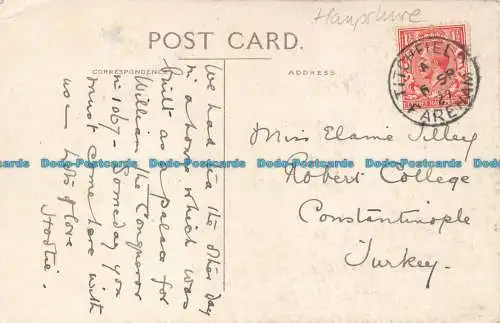 Hampshire
POST CARD.
CORRESPONDENCE
ADDRESS.
TITCHFIELD
FAREHAM
We had tea the other day
in a house which was
built as a palace for
William the Conqueror
in 1067 – Someday you
must come here with
us – Lots of love
Miss Elaine Tilley
Robert College
Constantinople
Turkey.
Postcards-Docs Postcards-Docs Postcards-Docs Postcards-Docs Postcards-Docs